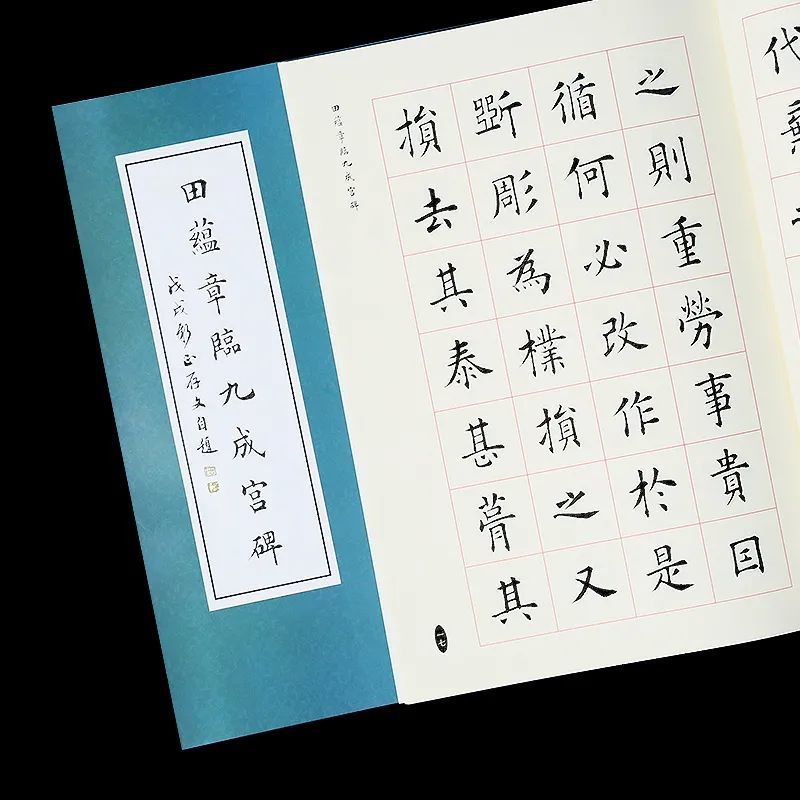 田蘊章臨九成宮碑
戊戌新正存文自題
田蘊章臨九成宮碑
代
之則重勞事貴因
循何必改作於是
斵彫為樸損之又
損去其泰甚葺其
一七